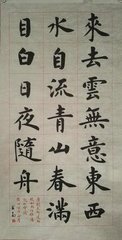 來去雲無意東西
水自流青山春滿
目白日夜隨舟